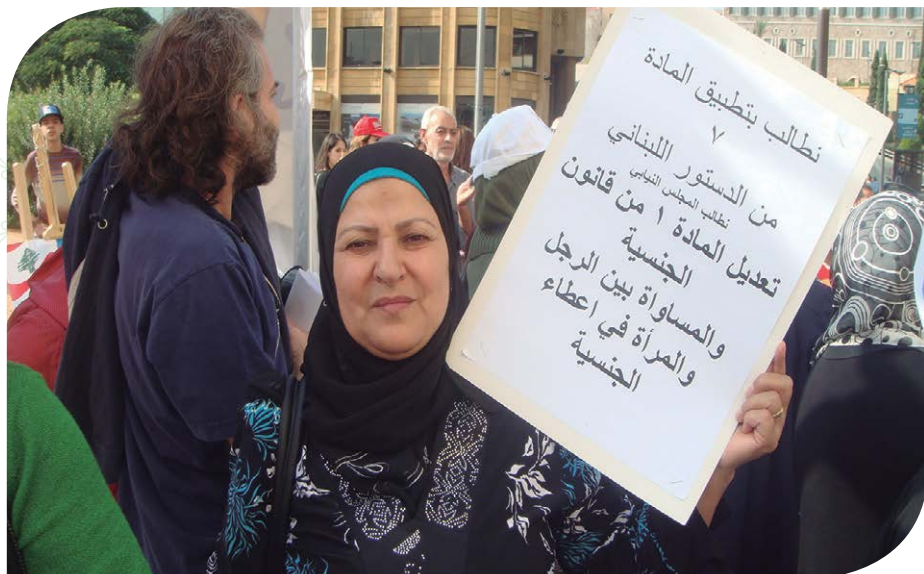 نطالب بتطبيق المادة
٧
من الدستور اللبناني
نطالب المجلس النيابي
تعديل المادة ١ من قانون
الجنسية
والمساواة بين الرجل
والمرأة في اعطاء
الجنسية